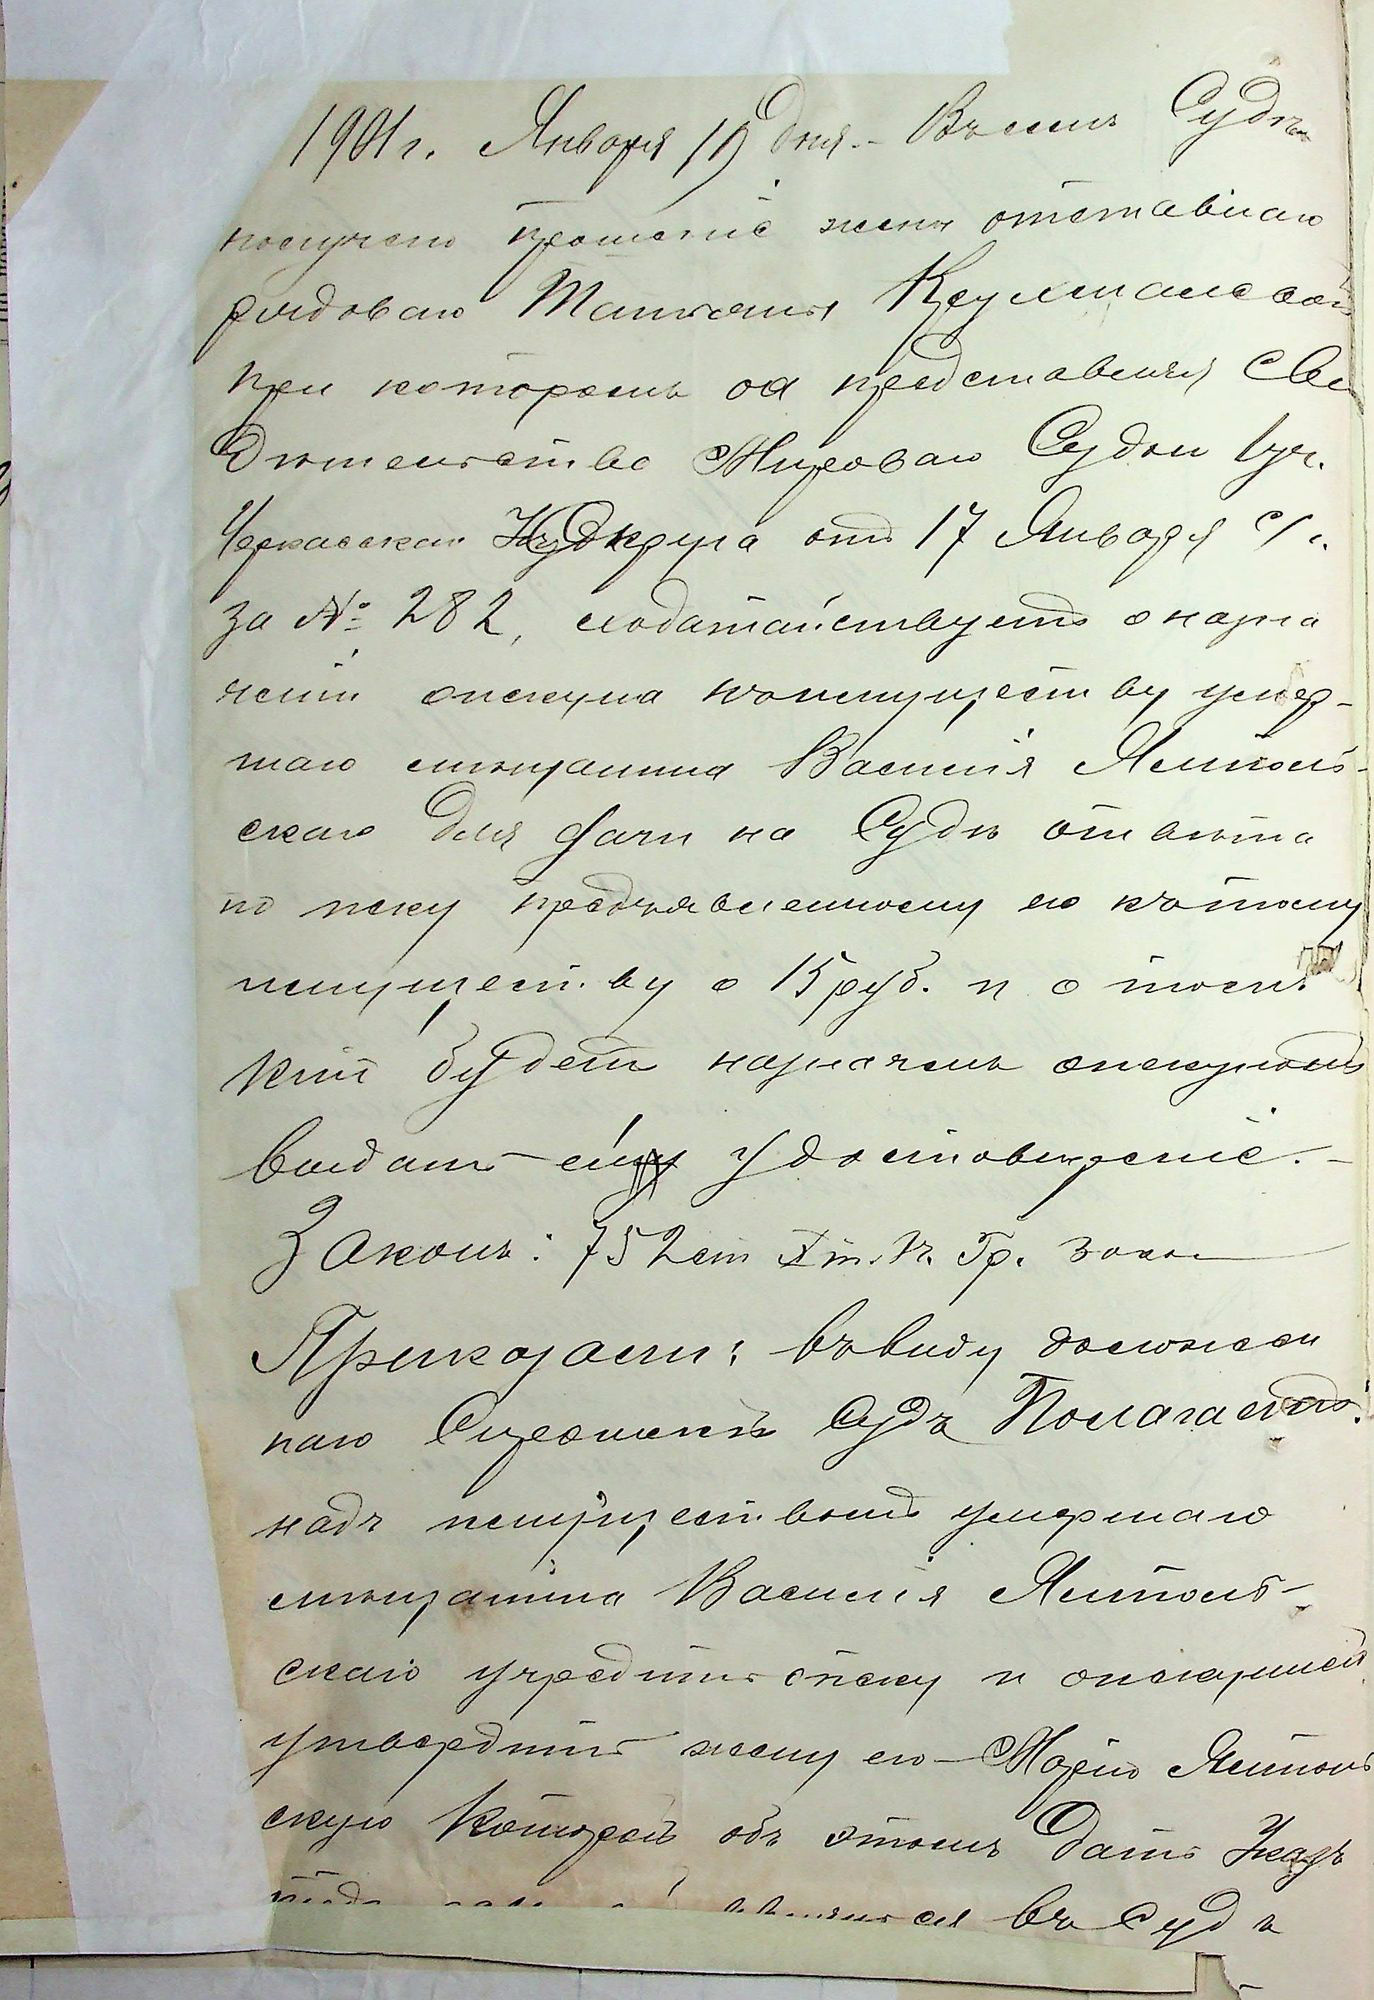 1901 г. Января 19 дня. – Въ семъ Судѣ
получено прошеніе жены отставнаго
рядоваго Татьяны
при которомъ оа представляя Сви
дѣтельство Мироваго Судьи 1 уч.
Черкасскаго Округа отъ 17 Января с/г.
за № 282, ходатайствуетъ о назна
ченіи опекуна къ имуществу умер-
шаго мѣщанина Василія Ялтонь-
скаго для дачи на Судѣ отвѣта
по иску предъявленному ею къ тому
имуществу о 15 руб. и о томъ
кто будетъ назначенъ опекуномъ
выдать ей удостовѣреніе. –
Законъ: 752 ст X т. 1 ч. Гр. зако
Приказали: въ виду изложен
наго Сиротскій Судъ Полагаетъ:
надъ имуществомъ умершаго
мѣщанина Василія Ялтонь-
скаго учредить опеку и опекуншей
утвердить жену его – Марію Ялтонь
скую которой объ этомъ дать Указъ
явиться въ Судъ